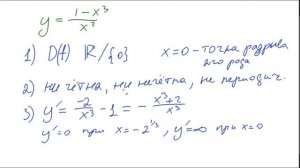 y = (1-x³)/x²
1) D(f) ℝ/{0} x=0 - точка разрыва 2го рода
2) ни чётна, ни нечётна, не периодич.
3) y' = -2/x³ - 1 = - (x³+2)/x³
y'=0 при x=-2^(1/3), y'=∞ при x=0